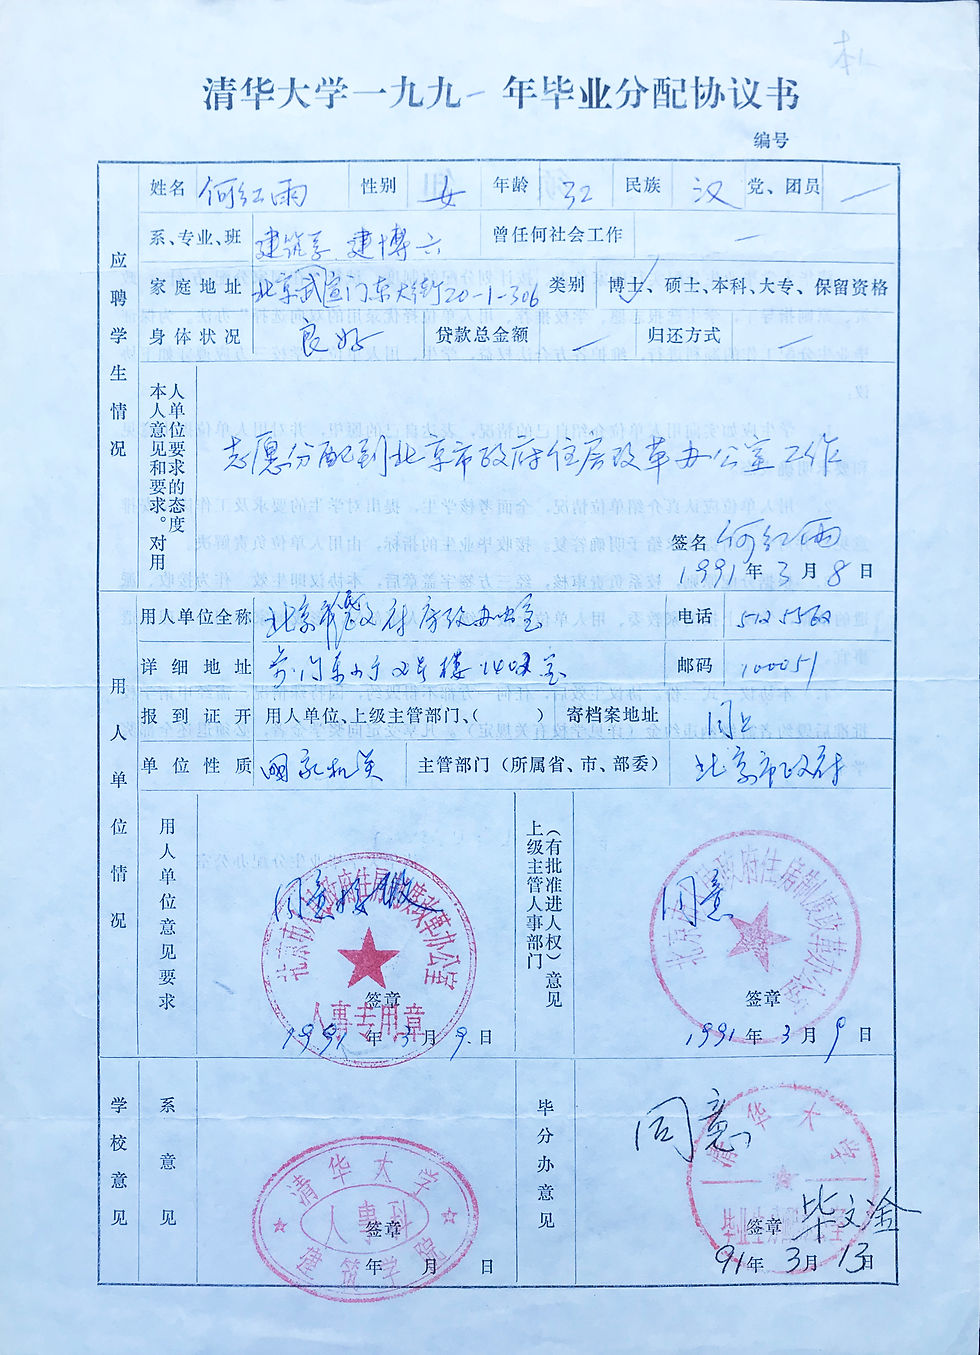 本
清华大学一九九一年毕业分配协议书
编号
应聘学生情况
姓名 何红雨 性别 女 年龄 32 民族 汉 党、团员 一
系、专业、班 建筑系 建博六 曾任何社会工作 一
家庭地址 北京武宣门东大街20-1-306 类别 博士、硕士、本科、大专、保留资格
身体状况 良好 贷款总金额 一 归还方式 一
本人意见和要求。对用人单位要求的态度
志愿分配到北京市政府住房改革办公室工作
签名 何红雨
1991年3月8日
用人单位情况
用人单位全称 北京市人民政府房改办公室 电话
详细地址 邮码 100051
报到证开 用人单位、上级主管部门、( ) 寄档案地址 同上
单位性质 国家机关 主管部门(所属省、市、部委) 北京市政府
用人单位意见要求
同意接收
北京市人民政府住房制度改革办公室
人事专用章
签章
1991年3月9日
上级主管人事部门(有批准进人权)意见
同意
北京市人民政府住房制度改革办公室
签章
1991年3月9日
学校意见
系意见
清华大学
人事科
建筑学院
签章
年 月 日
毕分办意见
同意
清华大学
签章 毕文淦
91年3月13日